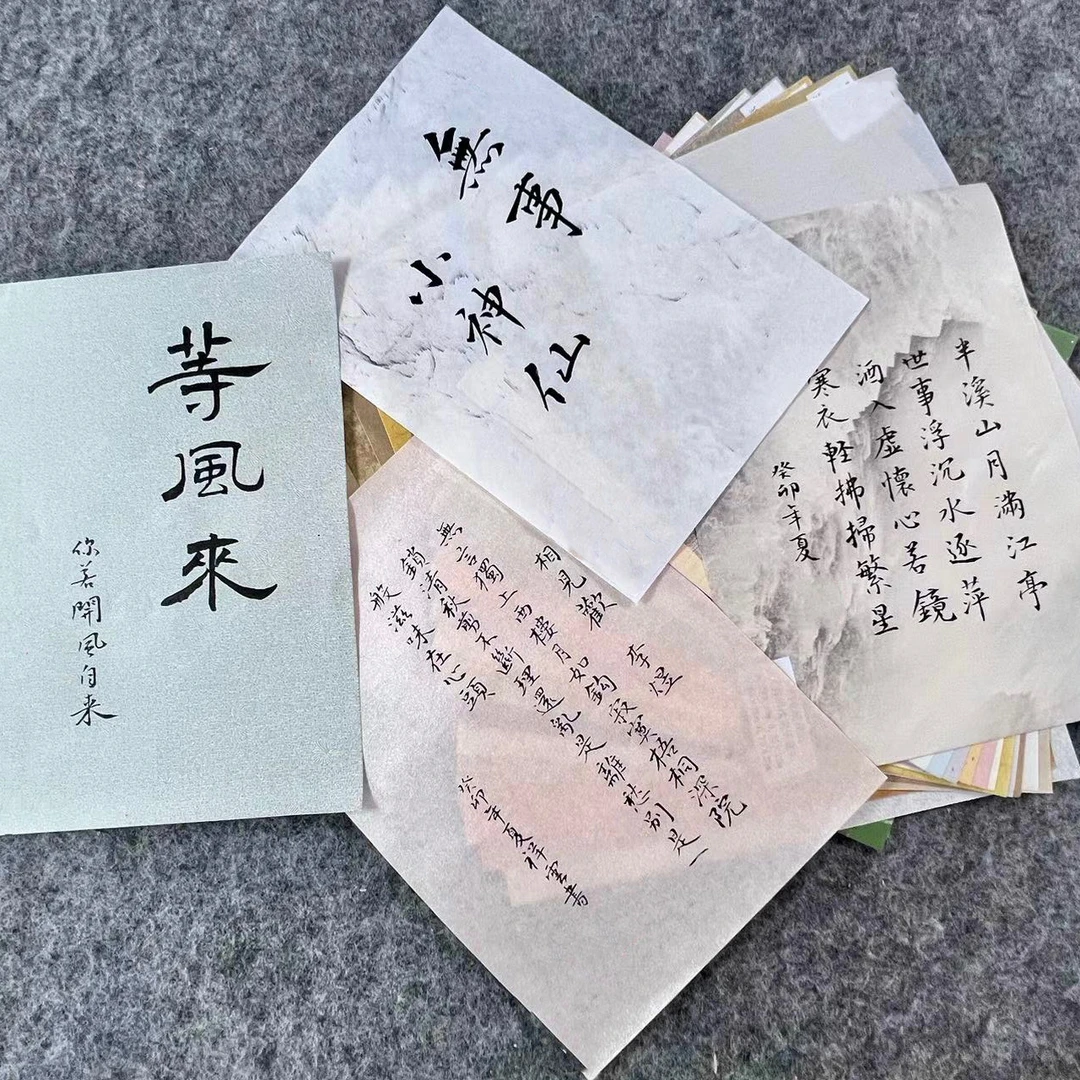 等風來
你若開風自来
無事
小神仙
半溪山月滿江亭
世事浮沉水逐萍
酒入虛懷心若鏡
寒衣軽拂掃繁星
癸卯年夏
相見歡 李煜
無言獨上西樓月如鈎寂寞梧桐深院
鎖清秋剪不斷理還亂是離愁別是一
般滋味在心頭
癸卯年夏祥雲書